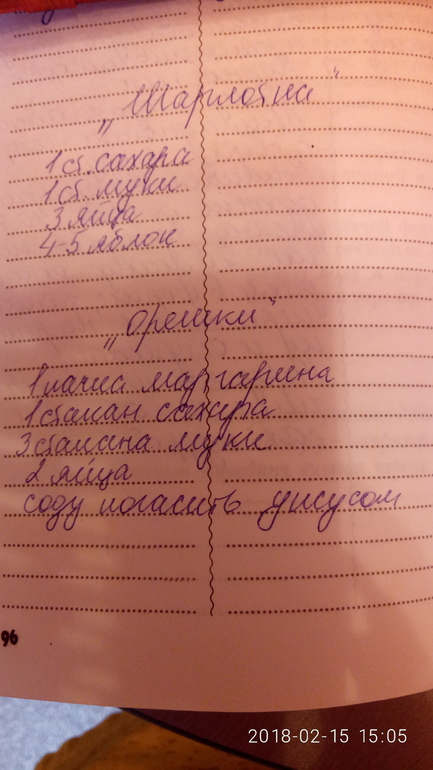 „Шарлотка"
1 ст. сахара
1 ст. муки
3 яйца
4-5 яблок
„Орешки"
1 пачка маргарина
1 стакан сахара
3 стакана муки
2 яйца
соду погасить уксусом
96
2018-02-15 15:05